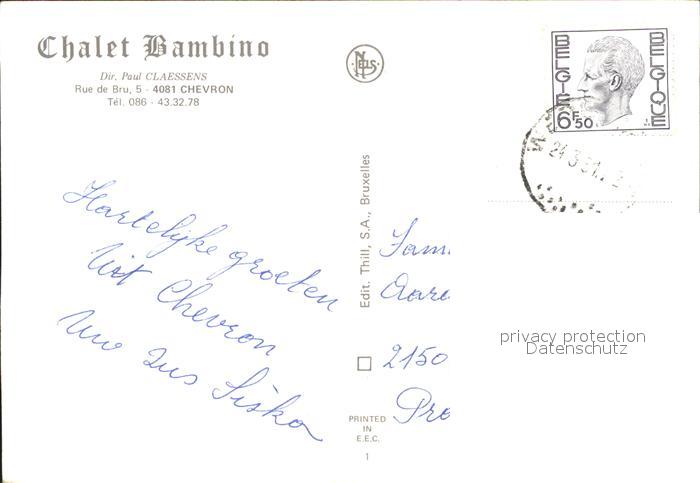 Chalet Bambino
Dir. Paul CLAESSENS
Rue de Bru, 5 - 4081 CHEVRON
Tél. 086 - 43.32.78
NELS
BELGIE
BELGIQUE
6F50
Hartelijke groeten
Uit Chevron
Uw Zus Siska
Edit. Thill, S.A., Bruxelles
Fam
Aare
2150
privacy protection
Datenschutz
PRINTED
IN
E.E.C.
1